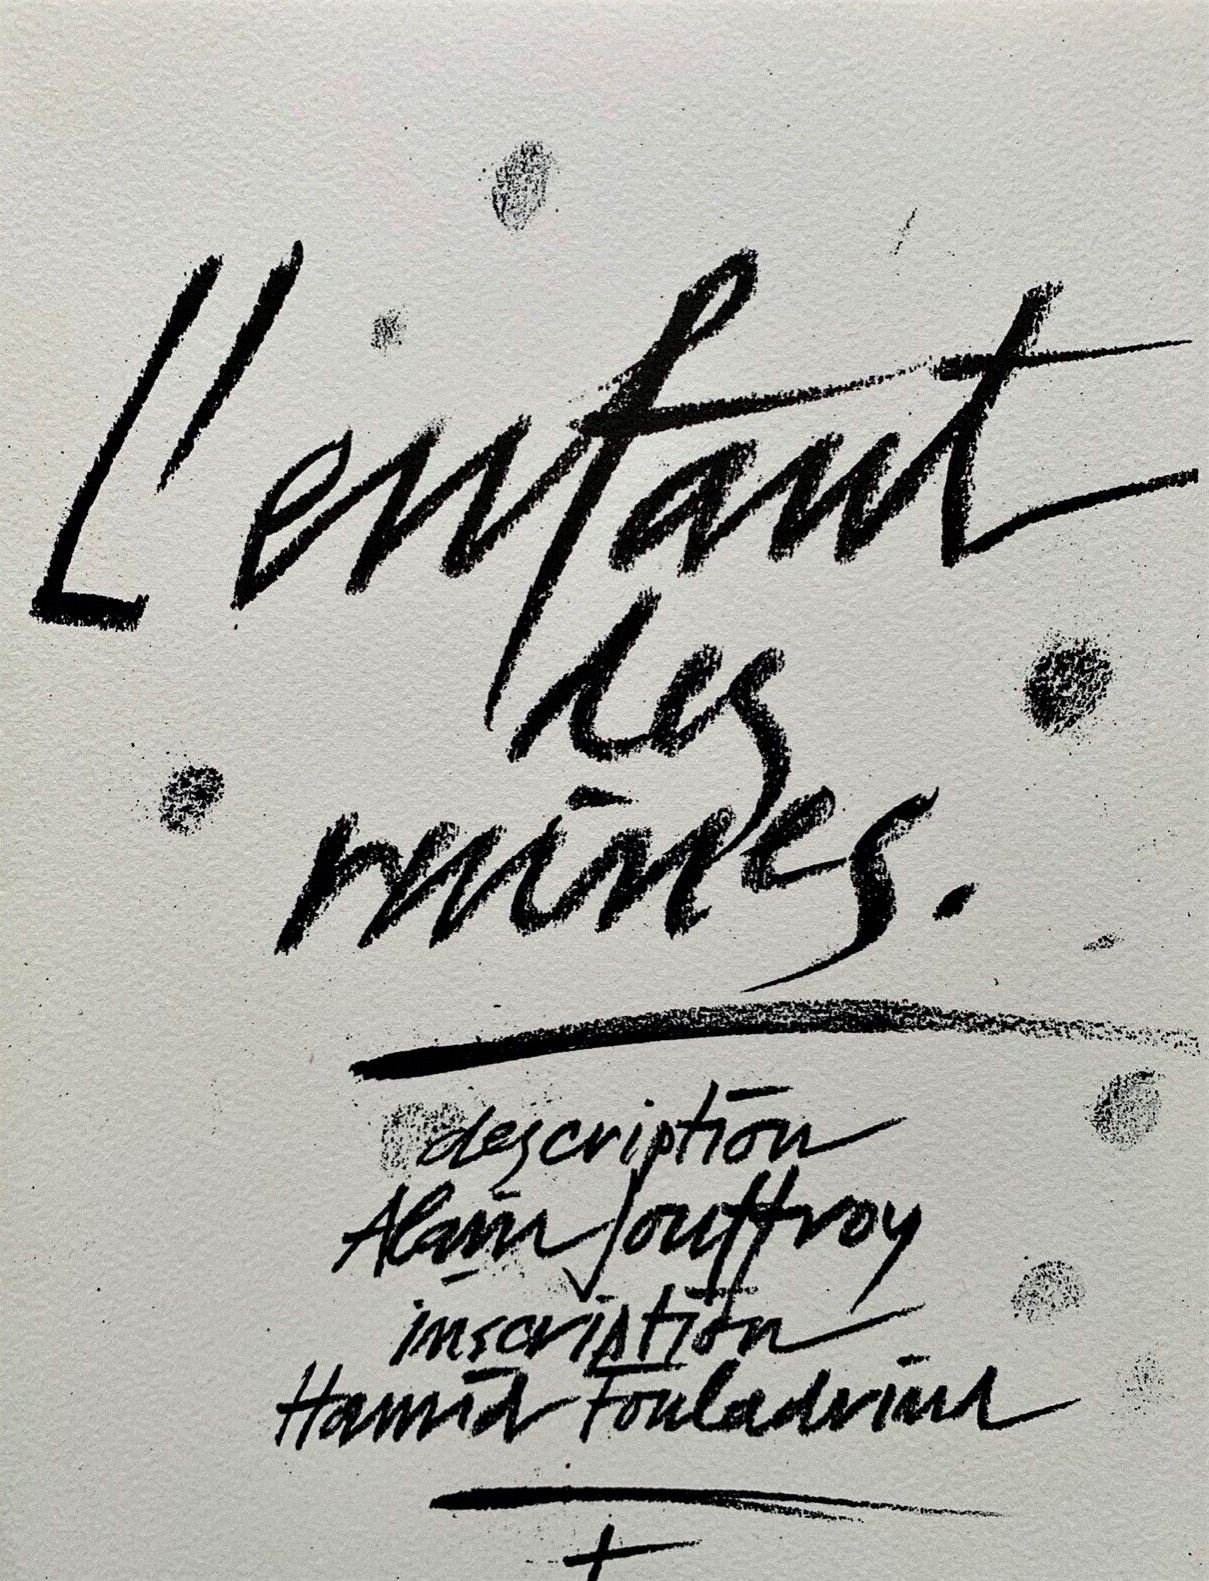 L'enfant
des
ruines.
description
Alain Jouffroy
inscription
Hamid Fouladvind